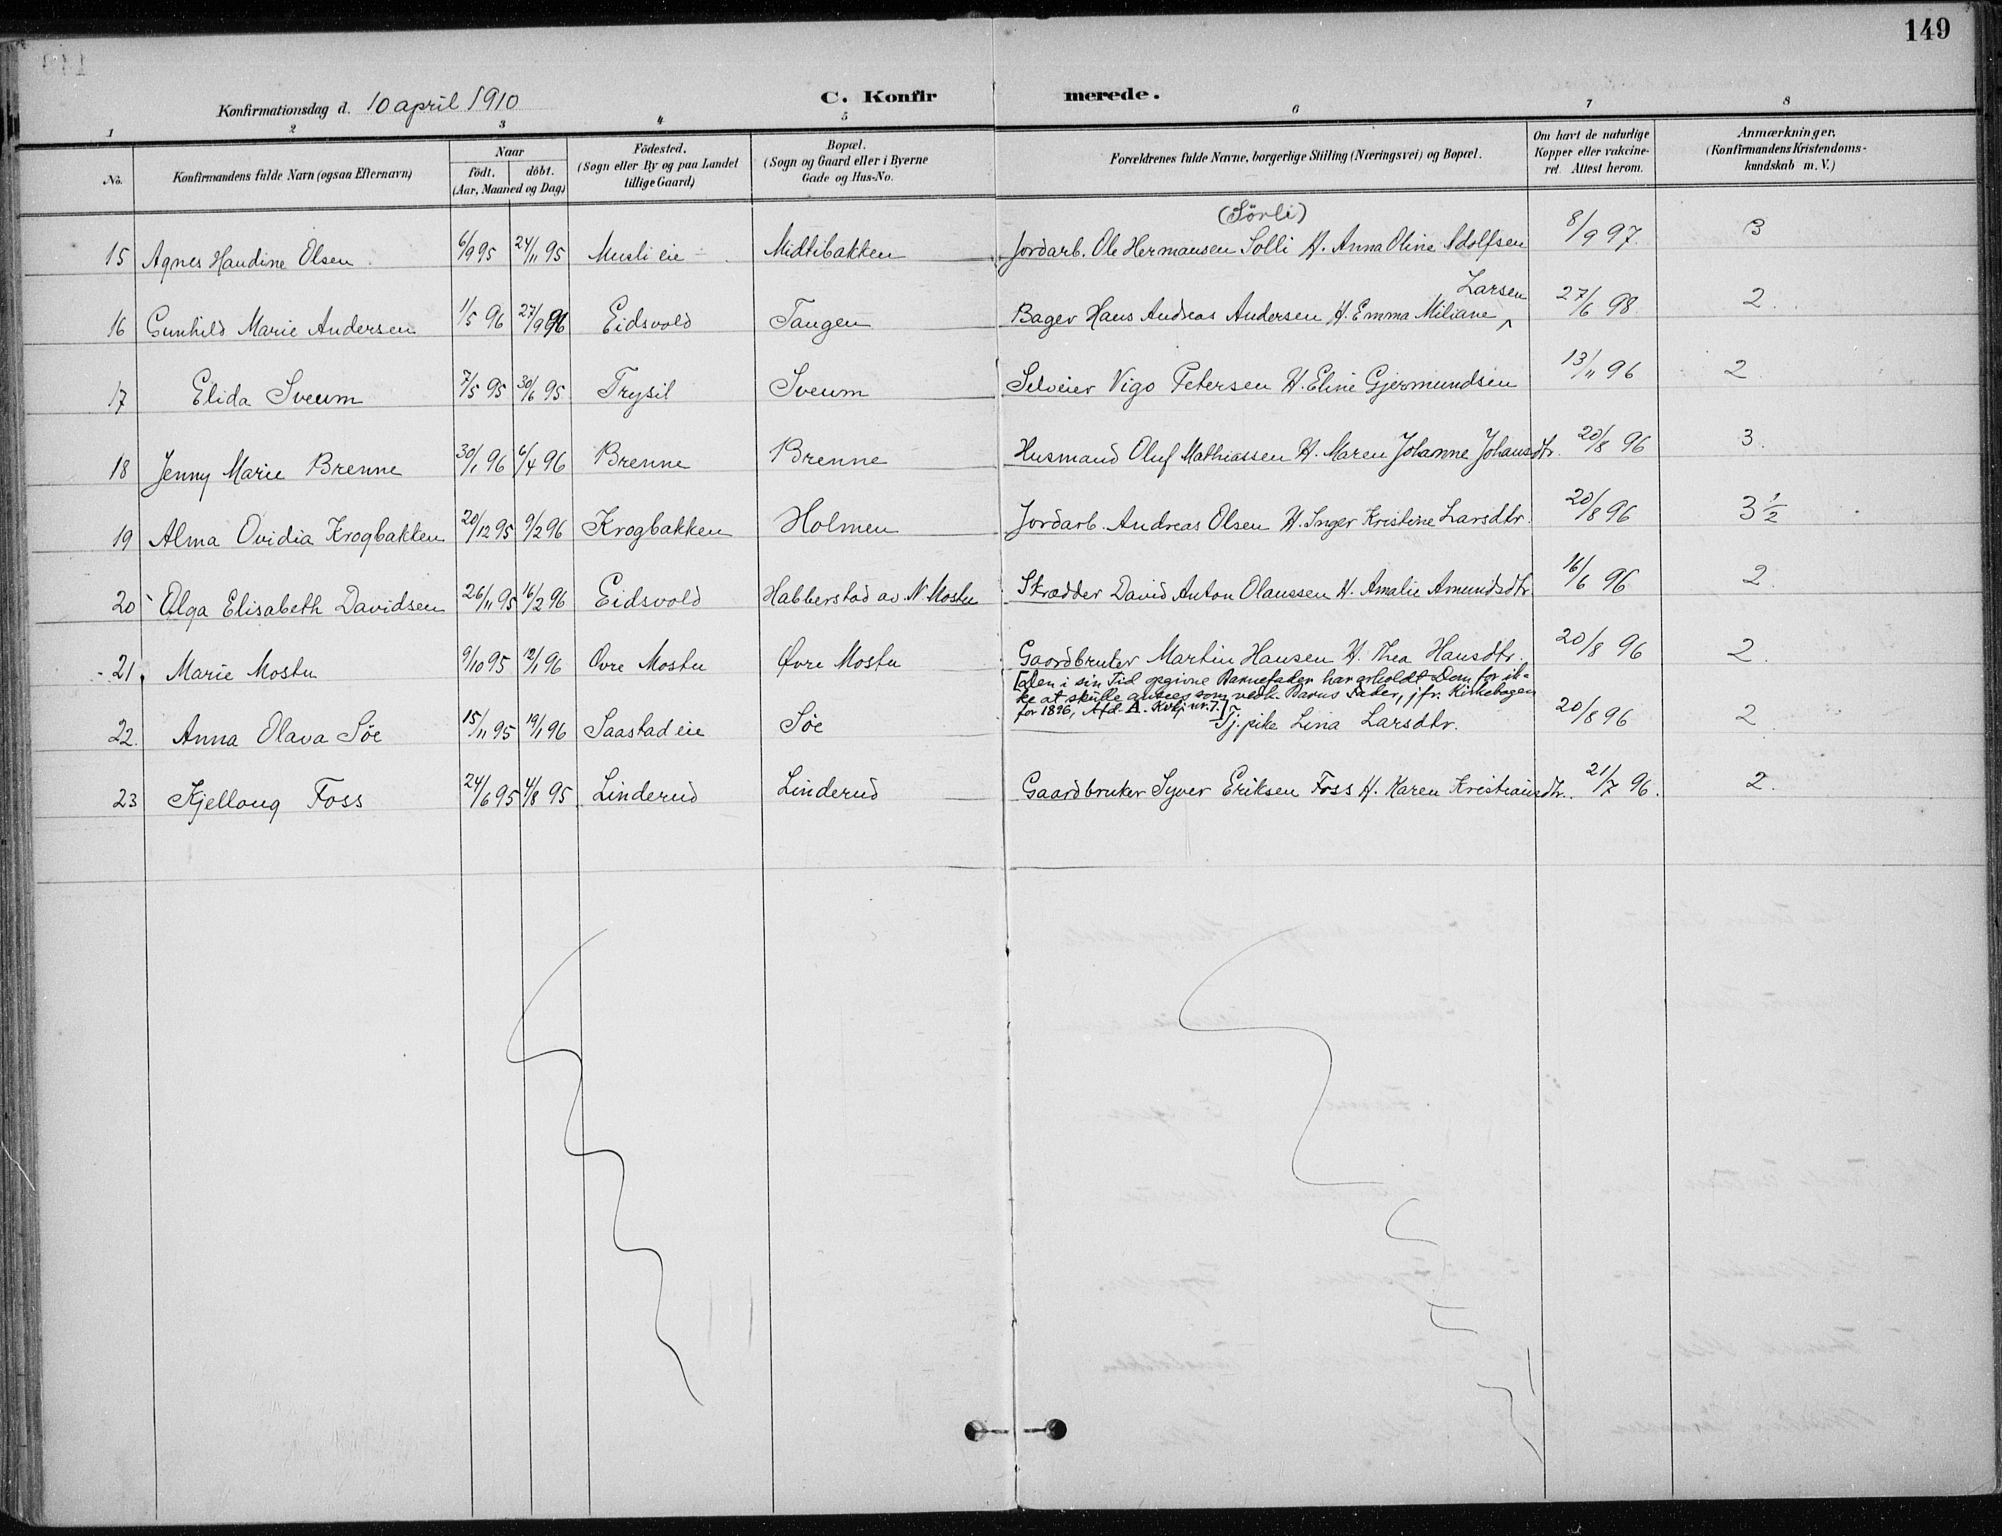 149
Konfirmationsdag d. 10 april 1910 C. Konfirmerede.
1 2 3 4 5 6 7 8
No. Konfirmandens fulde Navn (ogsaa Efternavn) Naar födt. döbt. (Aar, Maaned og Dag) Födested. (Sogn eller By og paa Landet tillige Gaard) Bopæl. (Sogn og Gaard eller i Byerne Gade og Hus-No. Forældrenes fulde Navne, borgerlige Stilling (Næringsvei) og Bopæl. Om havt de naturlige Kopper eller vakcineret. Attest herom. Anmærkninger. (Konfirmandens Kristendomskundskab m. V.)
(Sörli)
15 Agnes Haudine Olsen 6/9 95 24/11 95 Musli eie Midtibakken Jordarb. Ole Hermansen Solli H. Anna Oline Adolfsen 8/9 97. 3
Larsen
16 Gunhild Marie Andersen 1/5 96 27/9 96 Eidsvold Tangen Bager Hans Andreas Andersen H. Emma Miliane ^ 27/6 98. 2.
17 Elida Sveum 7/5 95 30/6 95 Trysil Sveum Selveier Vigo Petersen H. Eline Gjermundsen 13/11 96 2
18 Jenny Marie Brenne 30/1 96 6/4 96 Brenne Brenne Husmand Oluf Mathiassen H. Maren Johanne Johansdtr. 20/8 96 3.
19 Alma Ovidia Krogbakken 20/12 95 9/2 96 Krogbakken Holmen Jordarb. Andreas Olsen H. Inger Kristine Larsdtr. 20/8 96 3 1/2
20 Olga Elisabeth Davidsen 26/11 95 16/2 96 Eidsvold Habberstad av N. Mostu Skrædder David Anton Olaussen H. Amalie Amundsdtr 16/6 96 2.
21. Marie Mostu 9/10 95 12/1 96 Øvre Mostu Øvre Mostu Gaardbruker Martin Hansen H. Thea Hansdtr. 20/8 96 2.
[Den i sin Tid opgivne Barnefader har erholdt Dom for ik-
ke at skulle ansees som vedk. Barns Fader, jfr. Kirkebogen
for 1896, Afd. A. Kvkj nr. 7.]
22. Anna Olava Söe 15/11 95 19/1 96 Saastad eie Söe Tj.pike Lina Larsdtr. 20/8 96 2
23 Kjellaug Foss 24/6 95 4/8 95. Linderud Linderud Gaardbruker Syver Eriksen Foss H. Karen Kristiansdtr. 21/7 96. 2.